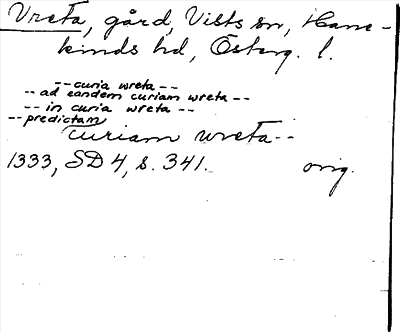 Vreta, gård, Vists sn, Hane-
kinds hd, Österg. l.
-- curia wreta --
-- ad eandem curiam wreta --
-- in curia wreta --
-- predictam
curiam wreta --
1333, SD 4, s. 341. orig.